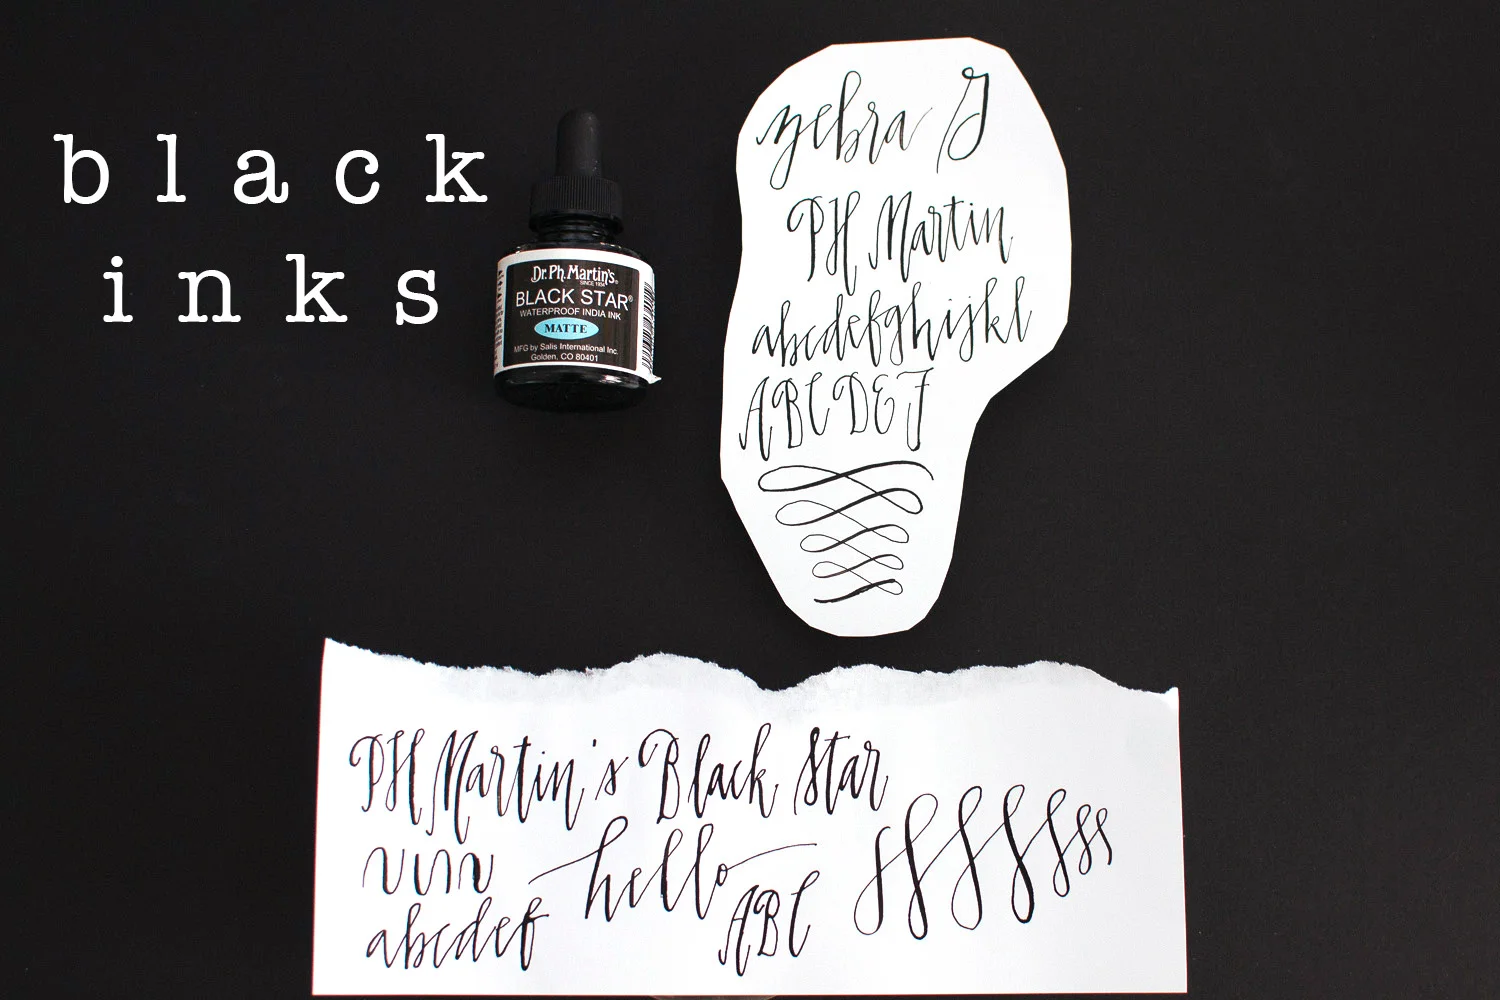 b l a c k
i n k s
Dr. Ph. Martin's®
SINCE 1934
BLACK STAR®
WATERPROOF INDIA INK
MATTE
MFG by Salis International Inc.
Golden, CO 80401
zebra G
PH Martin
abcdefghijkl
ABCDEF
PH Martin's Black Star
hello
abcdef
ABC